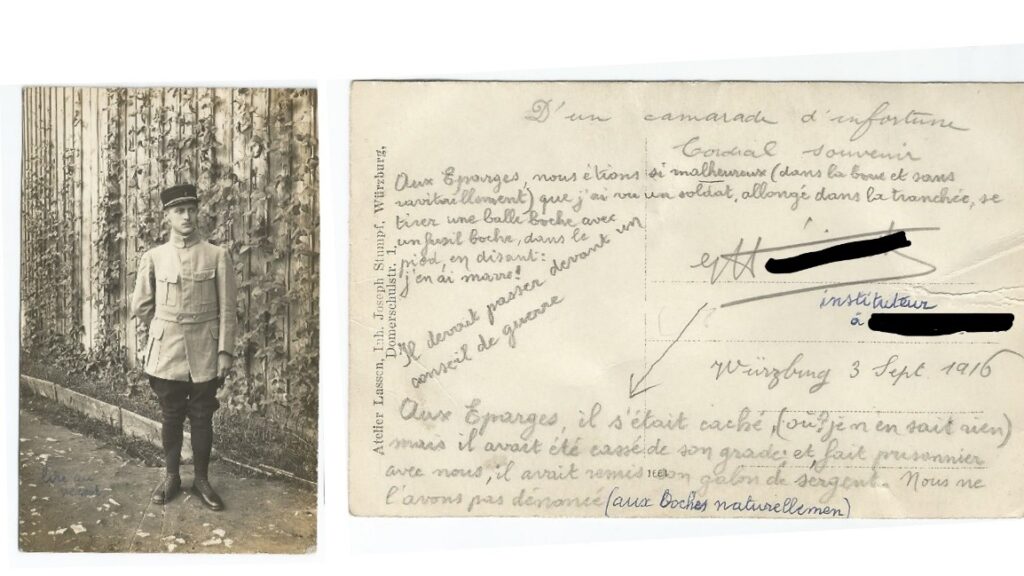 lire au
verso
Atelier Lassen, Inh. Joseph Stumpf, Würzburg,
Domerschulstr. 1.
D'un camarade d'infortune
Cordial souvenir
Aux Eparges, nous étions si malheureux (dans la boue et sans
ravitaillement) que j'ai vu un soldat, allongé dans la tranchée, se
tirer une balle boche avec
un fusil boche, dans le
pied, en disant:
j'en ai marre!
Il devait passer devant un
conseil de guerre
instituteur
à
Würzburg 3 Sept. 1916
Aux Eparges, il s'était caché, (où? je n'en sait rien)
mais il avait été cassé de son grade; et fait prisonnier
avec nous, il avait remis son galon de sergent. Nous ne
l'avons pas dénoncé (aux Boches naturellemen)